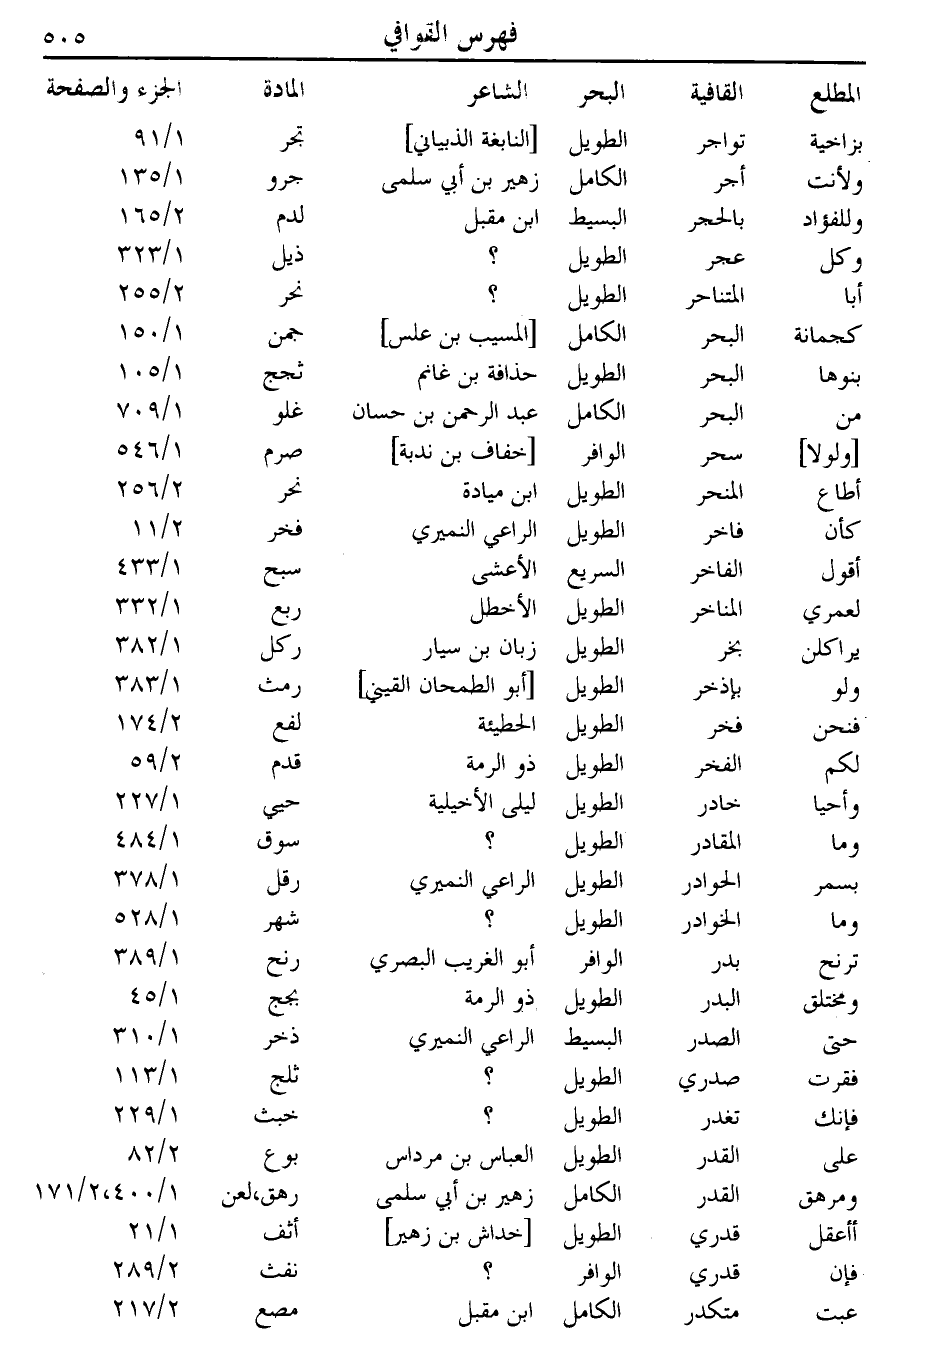 فهرس القوافي ٥٠٥
المطلع القافية البحر الشاعر المادة الجزء والصفحة
بزاخية تواجر الطويل [النابغة الذبياني] تجر ٩١/١
ولأنت أجر الكامل زهير بن أبي سلمى جرو ١٣٥/١
وللفؤاد بالحجر البسيط ابن مقبل لدم ١٦٥/٢
وكل عجر الطويل ؟ ذيل ٣٢٣/١
أبا المتناحر الطويل ؟ نحر ٢٥٥/٢
كجمانة البحر الكامل [المسيب بن علس] جمن ١٥٠/١
بنوها البحر الطويل حذافة بن غانم ثجج ١٠٥/١
من البحر الكامل عبد الرحمن بن حسان غلو ٧٠٩/١
[ولولا] سحر الوافر [خفاف بن ندبة] صرم ٥٤٦/١
أطاع المنحر الطويل ابن ميادة نحر ٢٥٦/٢
كأن فاخر الطويل الراعي النميري فخر ١١/٢
أقول الفاخر السريع الأعشى سبح ٤٣٣/١
لعمري المناخر الطويل الأخطل ربع ٣٣٢/١
يراكلن بخر الطويل زبان بن سيار ركل ٣٨٢/١
ولو بإذخر الطويل [أبو الطمحان القيني] رمث ٣٨٣/١
فنحن فخر الطويل الحطيئة لفع ١٧٤/٢
لكم الفخر الطويل ذو الرمة قدم ٥٩/٢
وأحيا خادر الطويل ليلى الأخيلية حيي ٢٢٧/١
وما المقادر الطويل ؟ سوق ٤٨٤/١
بسمر الحوادر الطويل الراعي النميري رقل ٣٧٨/١
وما الخوادر الطويل ؟ شهر ٥٢٨/١
ترنح بدر الوافر أبو الغريب البصري رنح ٣٨٩/١
ومختلق البدر الطويل ذو الرمة بجج ٤٥/١
حتى الصدر البسيط الراعي النميري ذخر ٣١٠/١
فقرت صدري الطويل ؟ ثلج ١١٣/١
فإنك تغدر الطويل ؟ خبث ٢٢٩/١
على القدر الطويل العباس بن مرداس بوع ٨٢/٢
ومرهق القدر الكامل زهير بن أبي سلمى رهق،لعن ٤٠٠/١،‏١٧١/٢
أأعقل قدري الطويل [خداش بن زهير] أثف ٢١/١
فإن قدري الوافر ؟ نفث ٢٨٩/٢
عبت متكدر الكامل ابن مقبل مصع ٢١٧/٢